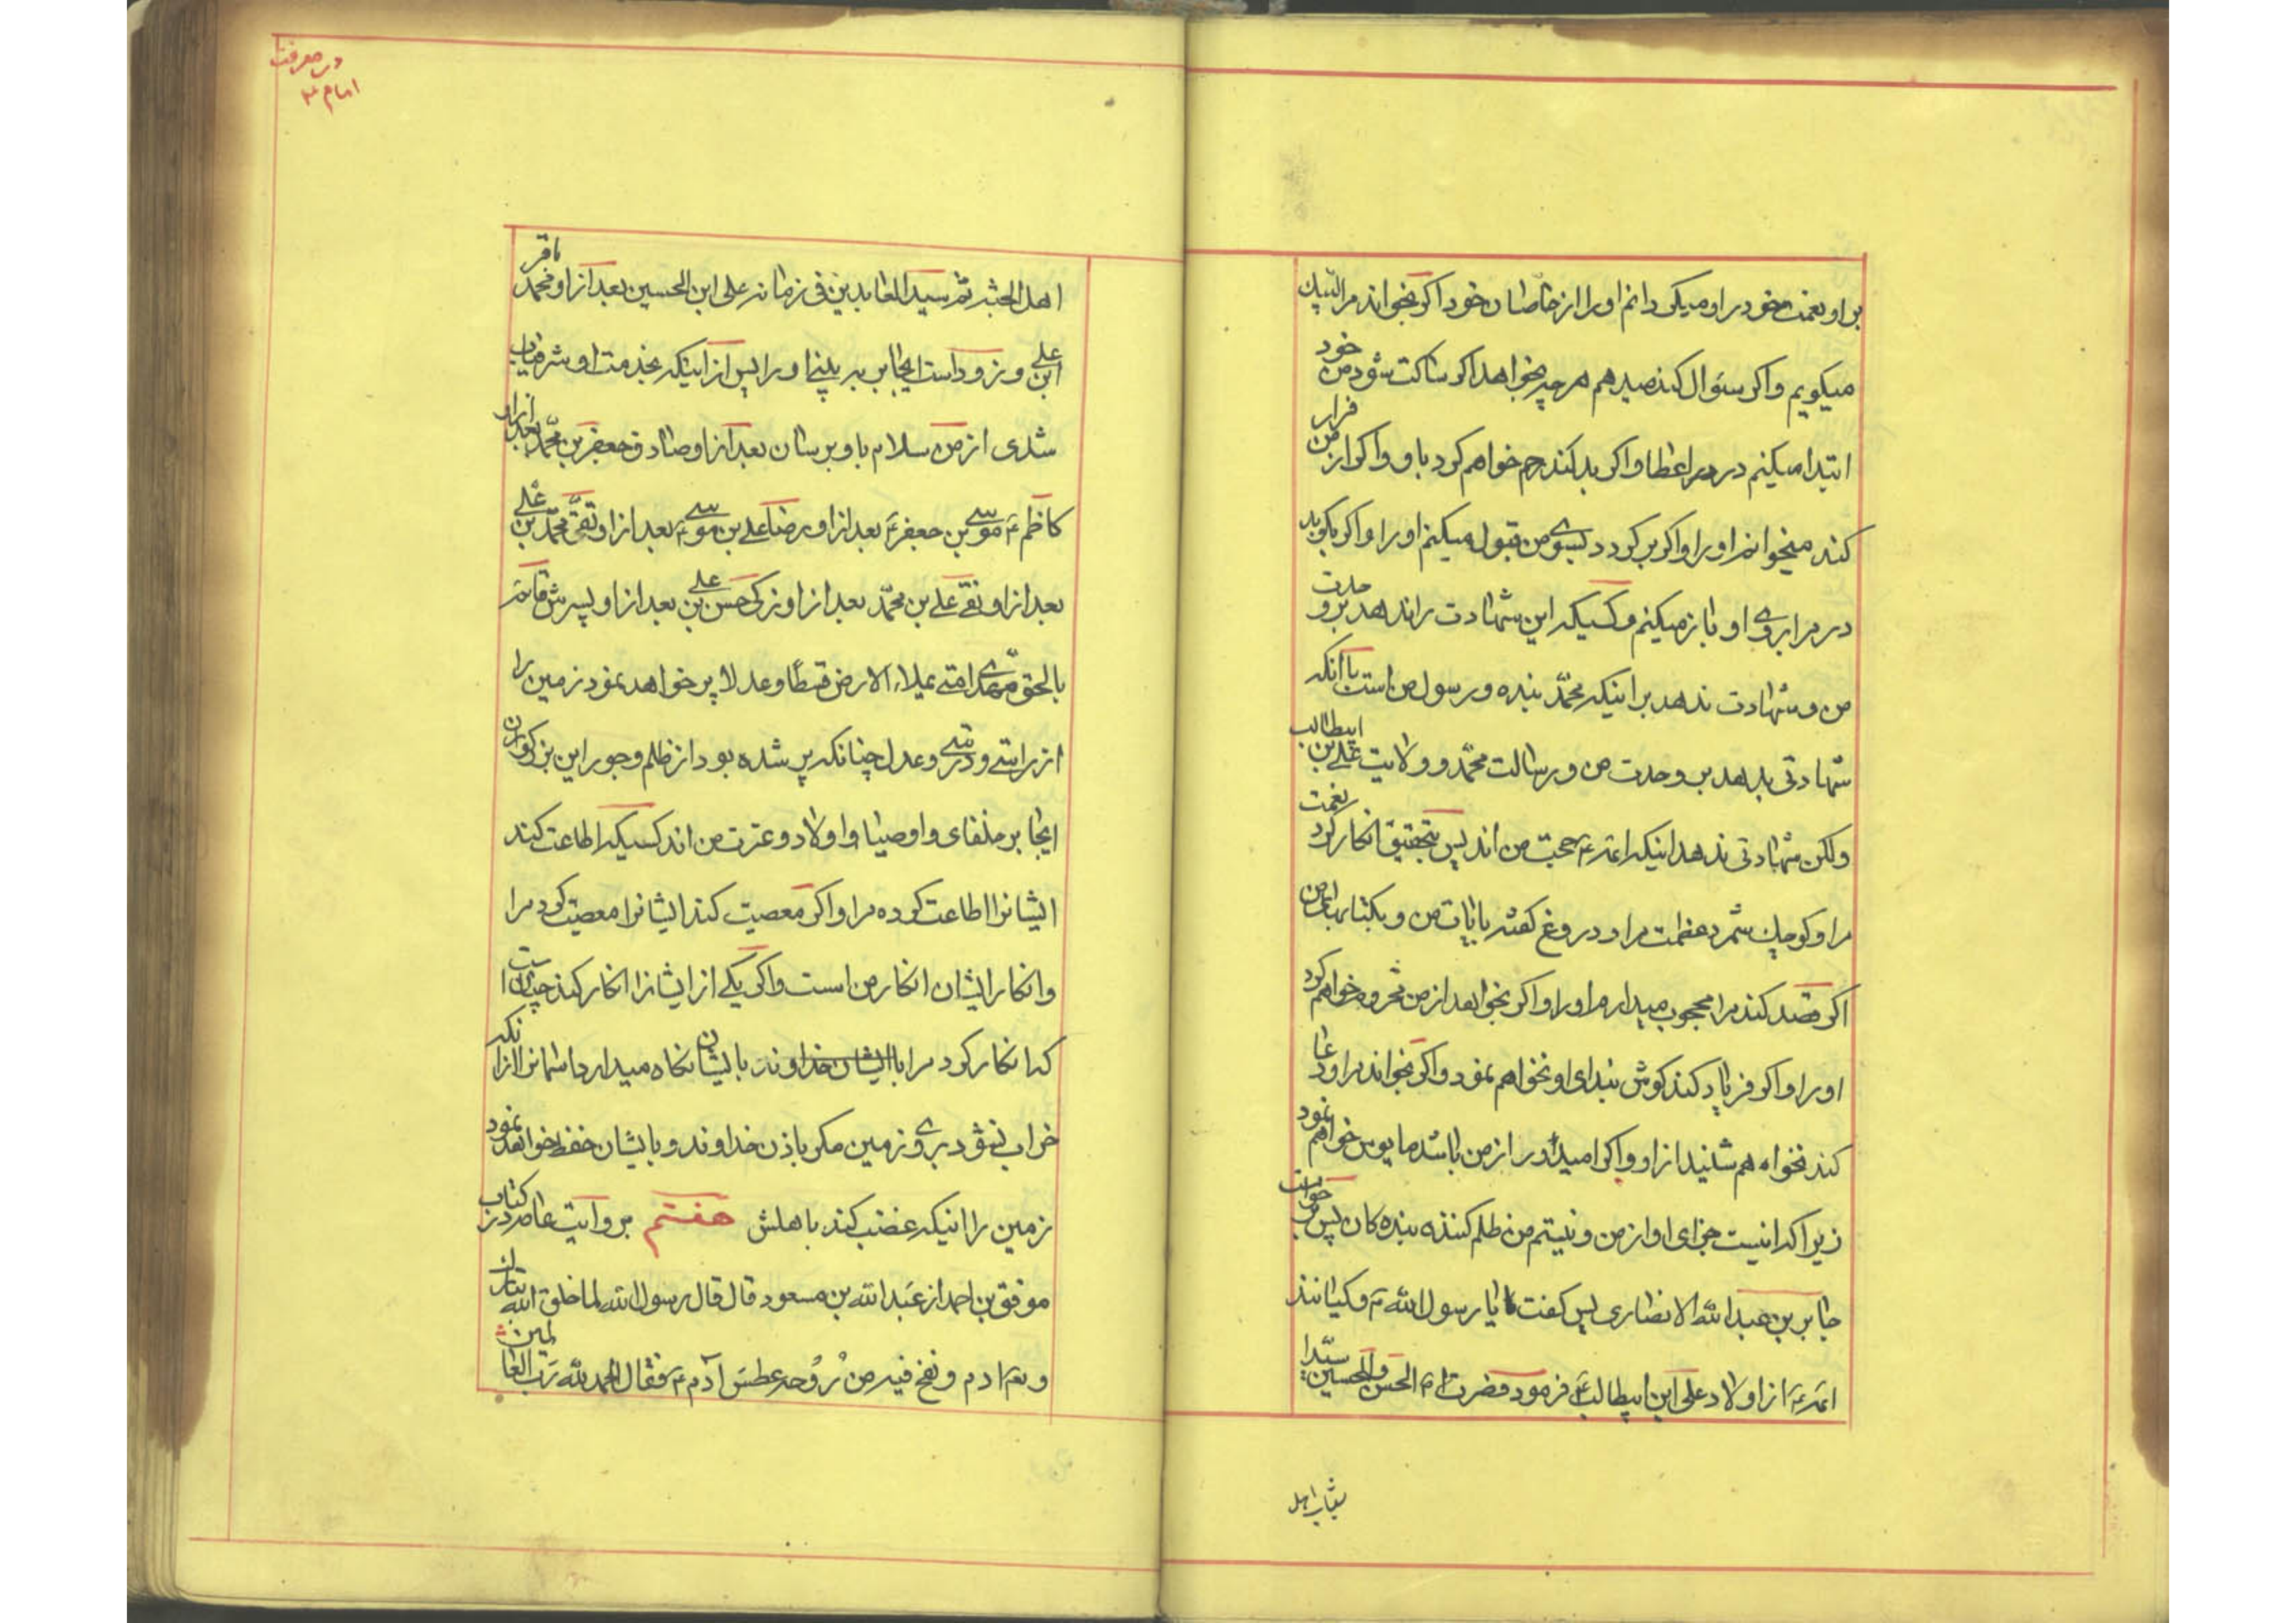 بر او نعمت خود را و میکردانم او را از خاصان خود اکر بخواند مرا لبیک
میکویم و اکر سئوال کند میدهم هر چه بخواهد اکر ساکت شود من خود
ابتدا میکنم در مر اعطا و اکر بد کند رحم خواهم کرد باو و اکر از من فرار
کند میخوانم او را و اکر بر کردد بسوی من قبول میکنم او را و اکر بکوبد
در مرا بروی او باز میکنم و کسیکه این شهادت را ندهد بر وحدت
من و شهادت ندهد بر اینکه محمّد بنده و رسول من است یا آنکه
شهادتی بدهد بر وحدت من و رسالت محمّد و ولایت علی بن ابیطالب
ولکن شهادتی ندهد اینکه ائمه ع حجت من اند پس بتحقیق انکار کرد نعمت
مرا و کوچک شمرد عظمت مرا و دروغ کفته بایات من و بکتابهای من
اکر قصد کند مرا محجوب میدارم او را و اکر بخواهد از من محروم خواهم کرد
او را و اکر فریاد کند کوش بندای او نخواهم نمود و اکر بخواند مرا و دعا
کند نخواهم شنید از او و اکر امیداور از من باشد مایوس خواهم نمود
زیرا که اینست جزای او از من و نیستم من ظلم کننده بنده کان پس بر خواست
جابر بن عبدالله الانصاری پس کفت یا رسول الله ص و کیانند
ائمه ع از اولاد علی ابن ابیطالب ع فرمود حضرت ص الحسن و الحسین سیّدا
شباب اهل
در معرفت
امام ع
اهل الجنه ثم سید العابدین فی زمانه علی ابن الحسین بعد از او محمد باقر
ابن علی و زود است ایجابر به بینی او را پس از اینکه بخدمت او شرفیاب
شدی از من سلام باو برسان بعد از او صادق جعفر بن محمّد بعد از او
کاظم ع موسی بن جعفر ع بعد از او رضا علی بن موسی ع بعد از او تقی محمّد بن علی
بعد از او نقی علی بن محمّد بعد از او زکی حسن بن علی بعد از او پسرش قائم
بالحق مهدی امتی یملاء الارض قسطاً و عدلا پر خواهد نمود زمین را
از راستی و درستی و عدل چنانکه پر شده بود از ظلم و جور این بزرکواران
ایجابر خلفای و اوصیا و اولاد و عترت من اند کسیکه اطاعت کند
ایشانرا اطاعت کرده مرا و اکر معصیت کند ایشانرا معصیت کرد مرا
و انکار ایشان انکار من است و اکر یکی از ایشانرا انکار کند چنان است
که انکار کرد مرا با ایشان خداوند بایشان نکاه میدارد اسمانرا از انکه
خراب بشود بروی زمین مکر باذن خداوند و بایشان حفظ خواهد نمود
زمین را اینکه غضب کند باهلش هفتم بروایت عامه در کتاب
موفق بن احمد از عبدالله بن مسعود قال قال رسول الله لما خلق الله تبارک
و تع ادم و نفخ فیه من رُوحه عطسَ آدم ع فقال الحمد لله رَب العالمین